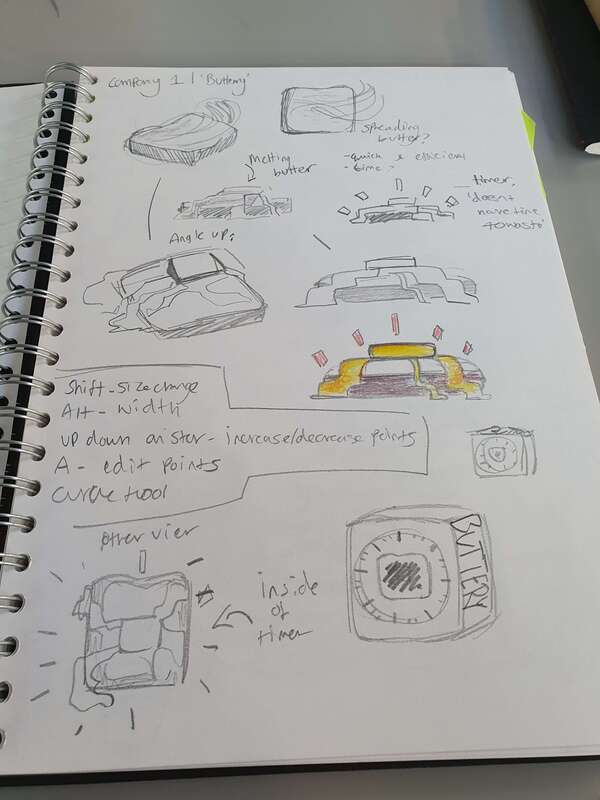 company 1 | 'Buttery'
spreading
butter?
- quick & efficient
- time?
melting
butter
timer,
'doesn't
have time
to waste'
Angle up:
Shift - size change
Alt - width
up down on star - increase/decrease points
A - edit points
curve tool
other view
inside
of
timer
BUTTERY